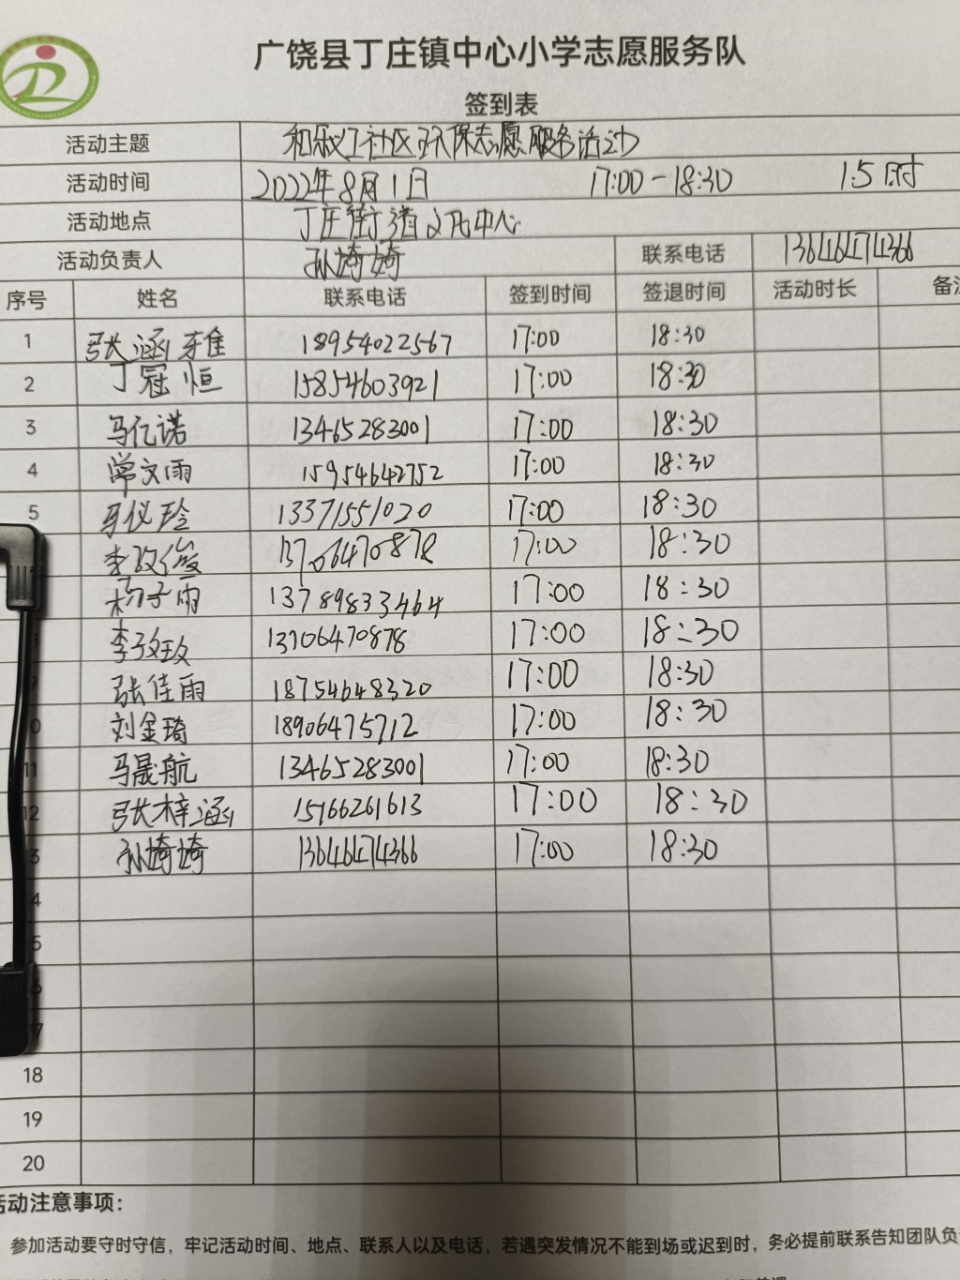 广饶县丁庄镇中心小学志愿服务队
签到表
活动主题 和乐红社区环保志愿服务活动
活动时间 2022年8月1日 17:00-18:30 1.5时
活动地点 丁庄街道文化中心
活动负责人 孙婍婍 联系电话 13646474366
序号 姓名 联系电话 签到时间 签退时间 活动时长 备注
1 张涵雅 18954022567 17:00 18:30
2 丁冠恒 15854603921 17:00 18:30
3 马亿诺 13465283001 17:00 18:30
4 常文雨 15954642752 17:00 18:30
5 马仪玲 13371551020 17:00 18:30
李政俊 13706470878 17:00 18:30
杨子雨 13789833464 17:00 18:30
李玟 13706470878 17:00 18:30
张佳雨 18754648320 17:00 18:30
0 刘金琦 18906475712 17:00 18:30
11 马晟航 13465283001 17:00 18:30
12 张梓涵 15166261613 17:00 18:30
3 孙婍婍 13646474366 17:00 18:30
4
5
6
7
18
19
20
活动注意事项：
参加活动要守时守信，牢记活动时间、地点、联系人以及电话，若遇突发情况不能到场或迟到时，务必提前联系告知团队负